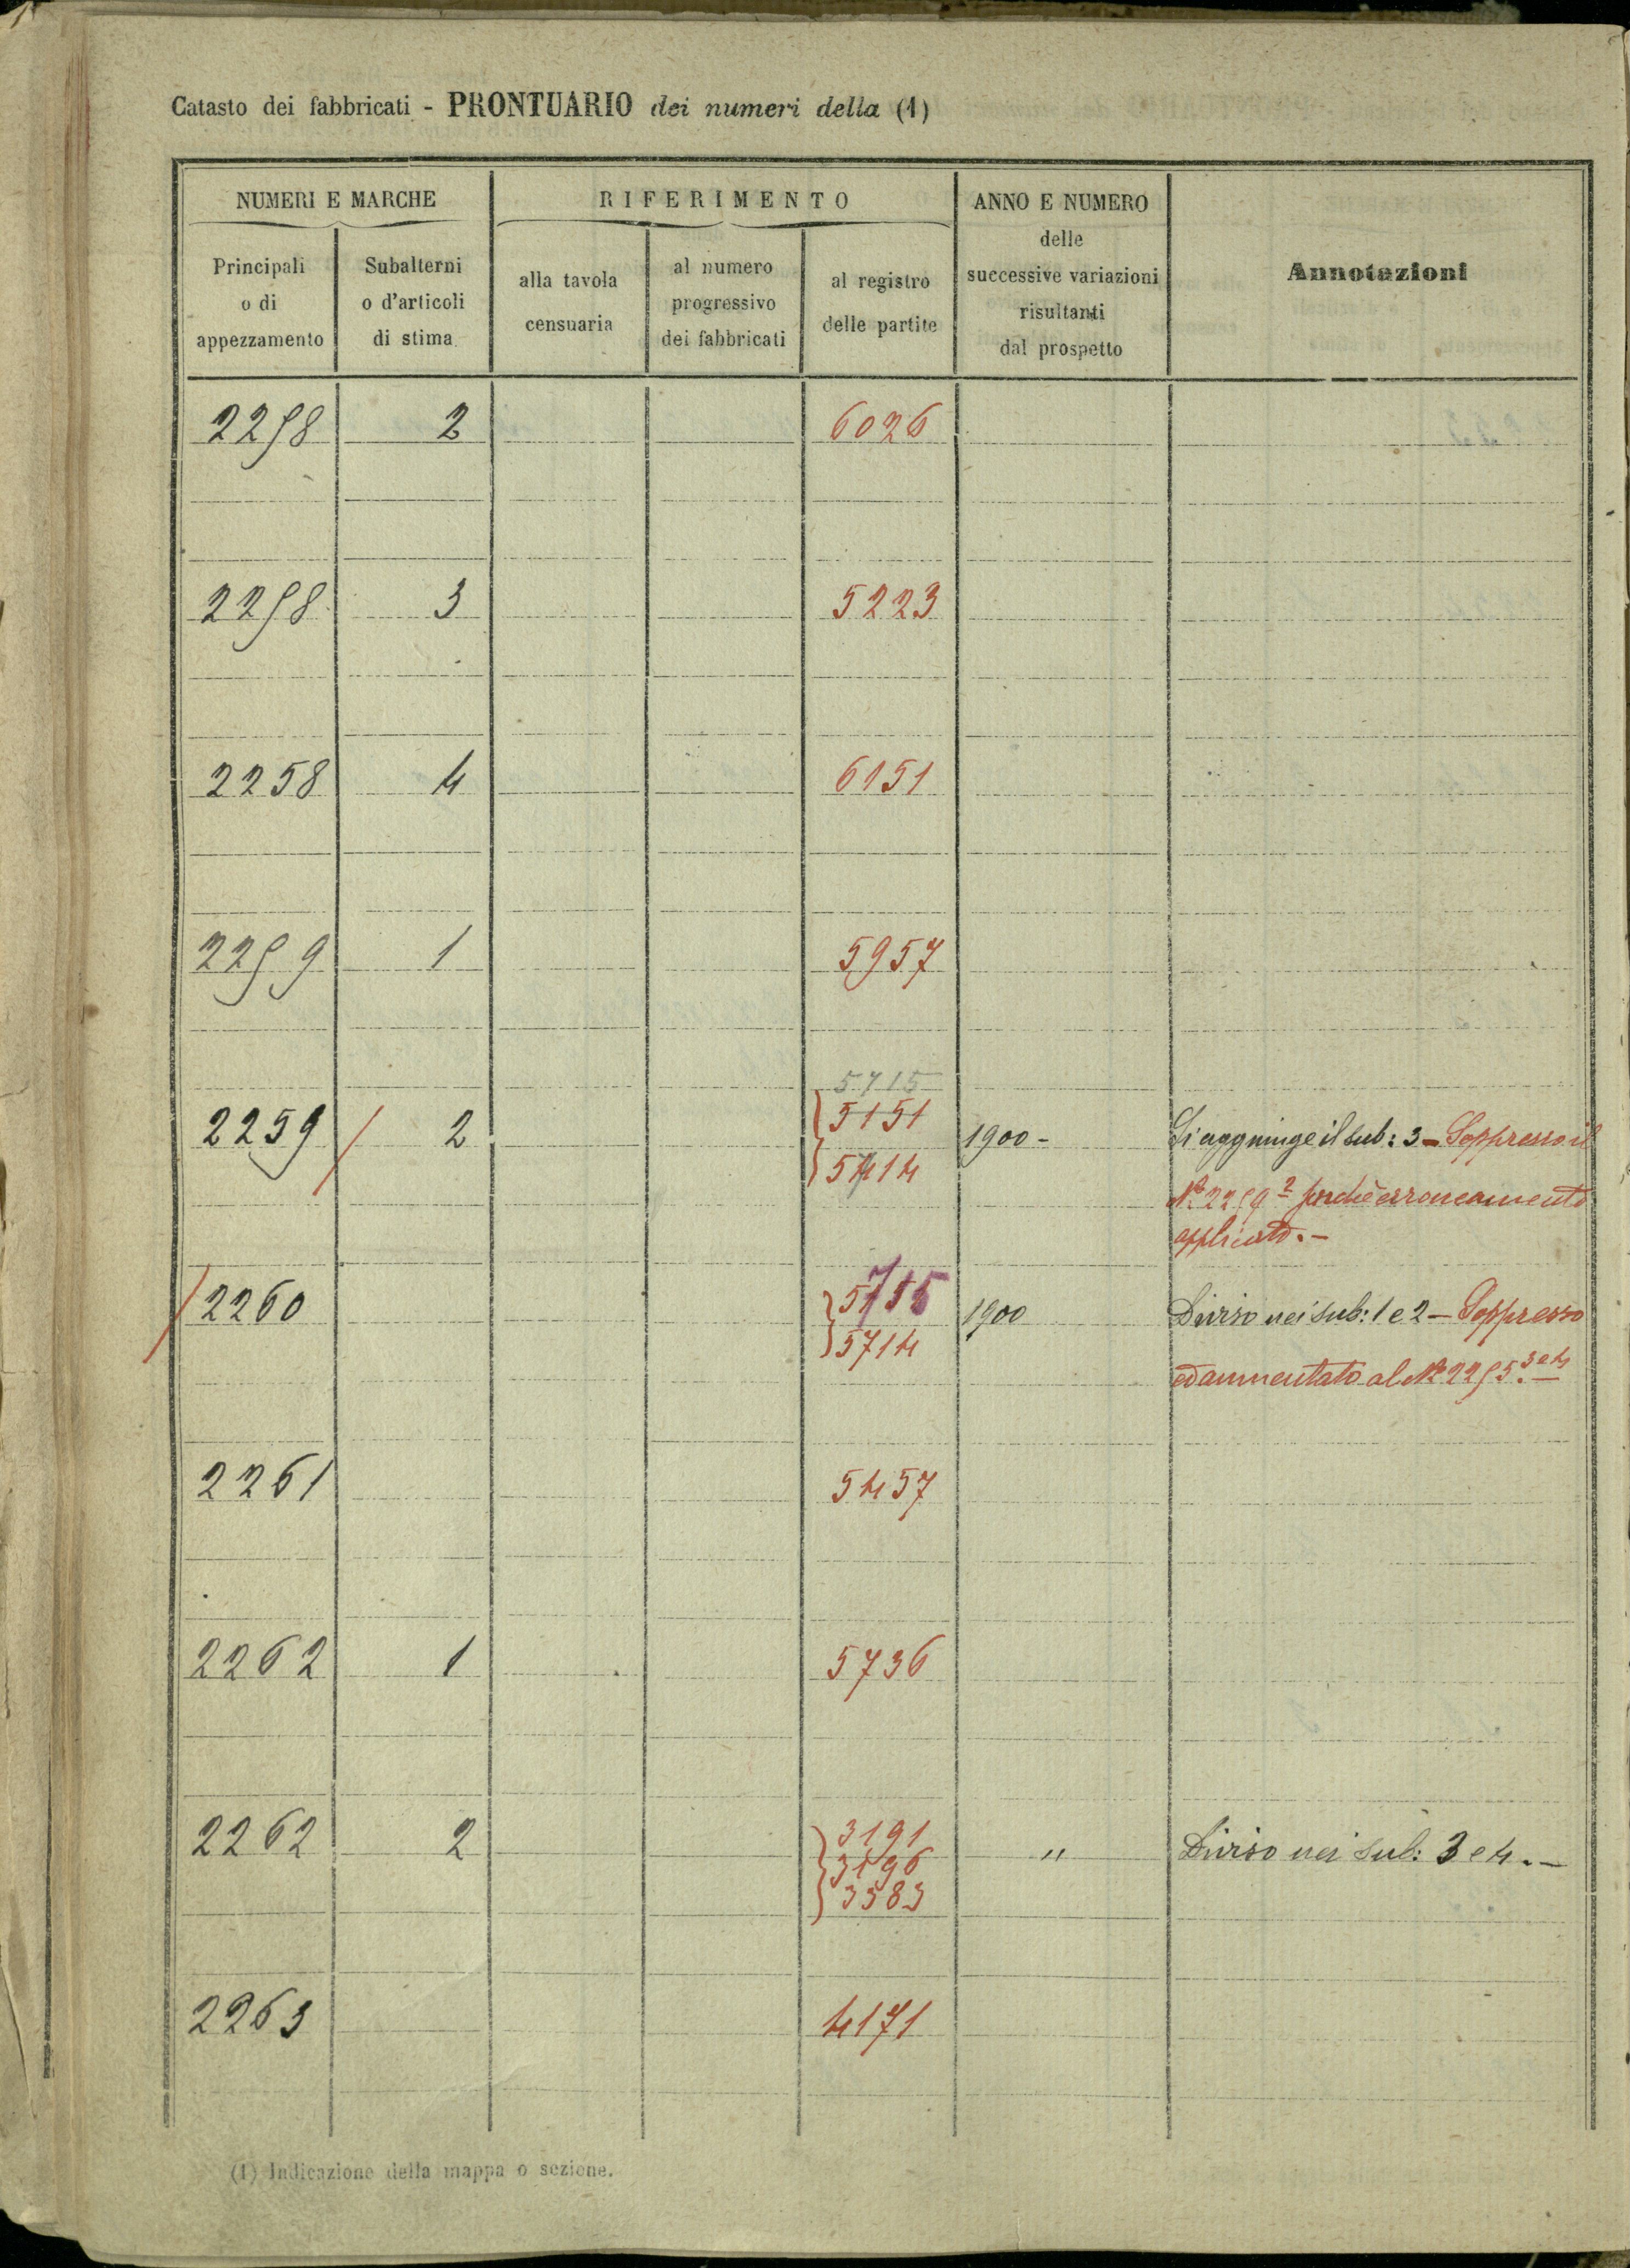 Catasto dei fabbricati - PRONTUARIO dei numeri della (1)
NUMERI E MARCHE
RIFERIMENTO
ANNO E NUMERO
delle
successive variazioni
risultanti
dal prospetto
Annotazioni
Principali
o di
appezzamento
Subalterni
o d'articoli
di stima
alla tavola
censuaria
al numero
progressivo
dei fabbricati
al registro
delle partite
2258 2 6026
2258 3 5223
2258 4 6151
2259 1 5957
5715
2259 2 5151 1900 - Si aggiunge il sub: 3 - Soppresso il
5414 No 2259 2 perchè erroneamente
applicato. -
2260 5715 1900 Diviso nei sub: 1 e 2 - Soppresso
5714 ed aumentato al No 2255 3 e 4 -
2261 5457
2262 1 5736
2262 2 3191 " Diviso nei sub: 3 e 4. -
3196
3583
2263 4171
(1) Indicazione della mappa o sezione.